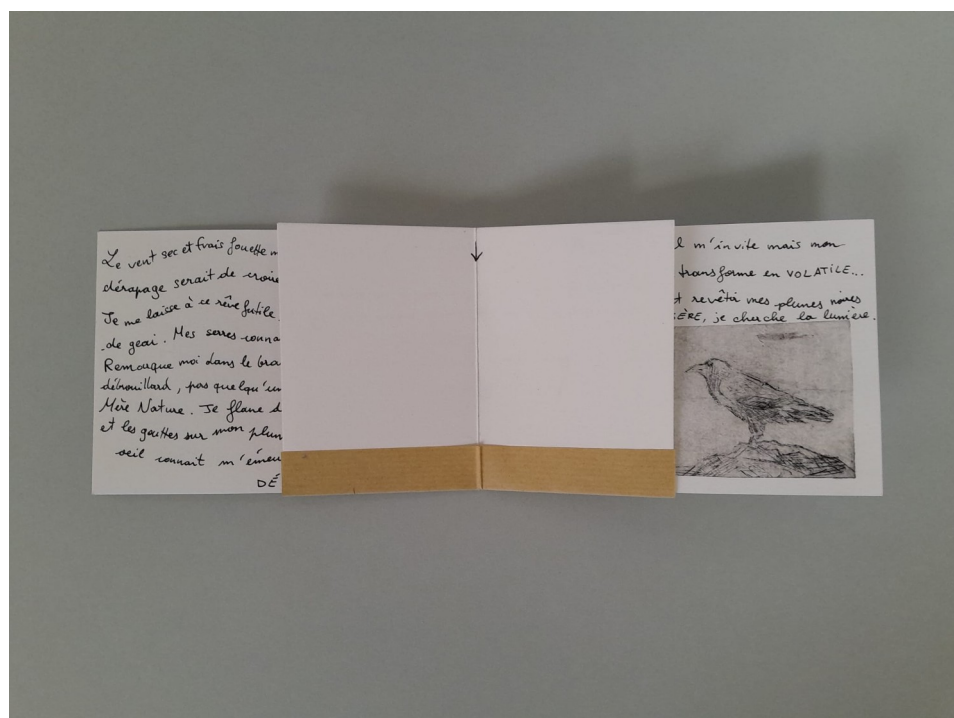 Le vent sec et frais fouette m
dérapage serait de croire
Je me laisse à ce rêve futile
de geai. Mes serres conna
Remarque moi dans le bra
débrouillard, pas quelqu'un
Mère Nature. Je flane d
et les gouttes sur mon plum
oeil connait m'émeu
DÉ
l m'invite mais mon
transforme en VOLATILE...
t revêtir mes plumes noires
ÈRE, je cherche la lumière.